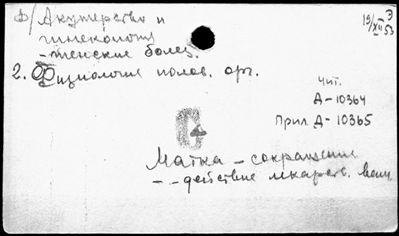 Ф/Акушерство и
гинекология
- женские болез.
2. Физиология полов. орг.
15/XII 53
Э
Чит.
Д-10364
Прил. Д-10365
Матка - сокращение
- - действие лекарств. вещ.